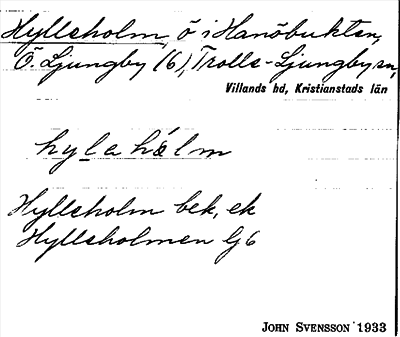 Hyllsholm, ö i Hanöbukten,
Ö. Ljungby (6), Trolls-Ljungby sn,
Villands hd, Kristianstads län
hylahålm
Hyllsholm bek, ek
Hyllsholmen Gj6
JOHN SVENSSON 1933